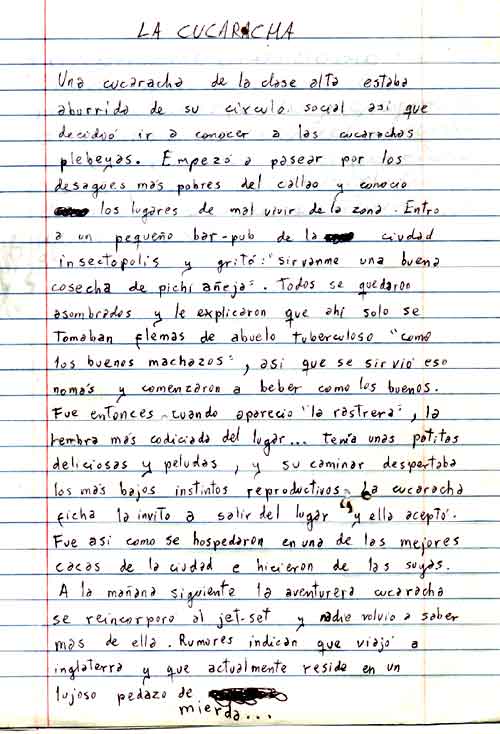 LA CUCARACHA
Una cucaracha de la clase alta estaba
aburrida de su circulo social asi que
decidió ir a conocer a las cucarachas
plebeyas. Empezó a pasear por los
desagües más pobres del callao y conocio
los lugares de mal vivir de la zona. Entro
a un pequeño bar-pub de la ciudad
insectopolis y gritó: "sirvanme una buena
cosecha de pichi añeja". Todos se quedaron
asombrados y le explicaron que ahi solo se
Tomaban flemas de abuelo tuberculoso "como
los buenos machazos", asi que se sirvió eso
nomás y comenzaron a beber como los buenos.
Fue entonces cuando aparecio "la rastrera", la
hembra más codiciada del lugar... tenia unas patitas
deliciosas y peludas, y su caminar despertaba
los más bajos instintos reproductivos. La cucaracha
ficha la invito a salir del lugar y ella aceptó.
Fue asi como se hospedaron en una de las mejores
cacas de la ciudad e hicieron de las suyas.
A la mañana siguiente la aventurera cucaracha
se reincorporo al jet-set y nadie volvio a saber
mas de ella. Rumores indican que viajó a
inglaterra y que actualmente reside en un
lujoso pedazo de
mierda...